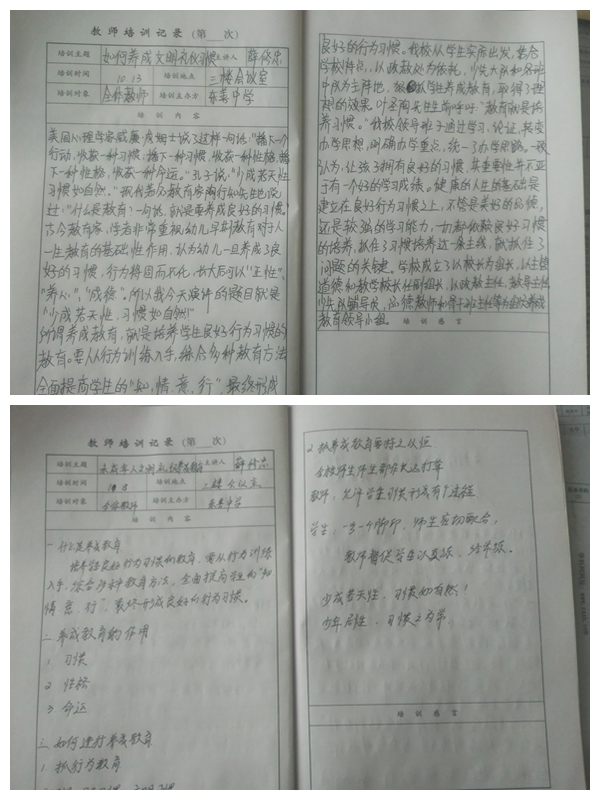 教师培训记录（第 次）
培训主题 如何养成文明礼仪习惯 主讲人 薛修忠
培训时间 10.13 培训地点 三楼会议室
培训对象 全体教师 培训主办方 东莱中学
培训内容
英国心理学家威廉·詹姆士说了这样一句话："播下一个
行动，收获一种习惯；播下一种习惯，收获一种性格；播
下一种性格，收获一种命运。"孔子说："少成若天性，
习惯如自然。"现代著名教育家陶行知先生也说
过："什么是教育？一句话，就是要养成良好的习惯。"
古今教育家、学者非常重视幼儿早期教育对于人
一生教育的基础性作用，认为幼儿一旦养成了良
好的习惯，行为将因而不化，长大后可以"正性"、
"养心"、"成德"。所以我今天演讲的题目就是
"少成若天性，习惯如自然！"
所谓养成教育，就是培养学生良好行为习惯的
教育。要从行为训练入手，综合多种教育方法
全面提高学生的"知、情、意、行"，最终形成
良好的行为习惯。我校从学生实际出发，结合
学校特点，以政教处为依托，少先大队和各班
中队为主阵地，狠抓学生养成教育，取得了理
想的效果。叶圣陶先生生前呼吁"教育就是培
养习惯。"我校领导班子通过学习、论证，其变
办学思想，明确办学重点，统一了办学思路。一致
认为，让孩子拥有良好的习惯，其重要性并不亚
于有一个好的学习成绩。健康的人生的基础是
建立在良好行为习惯之上，不管是美好的品德，
还是较强的学习能力，一切都依赖良好习惯
的培养，抓住了习惯培养这一条主线，就抓住了
问题的关键。学校成立了以校长为组长，以主管
道德和教学校长任副组长，以政教主任、教导主任
少先队辅导员、品德教师和骨干班主任等为组员的养成
教育领导小组。
培训感言
教师培训记录（第 次）
培训主题 未成年人文明礼仪养成教育 主讲人 薛修忠
培训时间 培训地点 二楼会议室
培训对象 全体教师 培训主办方 东莱中学
培训内容
一.什么是养成教育
培养学生良好行为习惯的教育，要从行为训练
入手，综合多种教育方法，全面提高学生的"知
情、意、行"，最终形成良好的行为习惯。
二.养成教育的作用
1 习惯
2 性格
3 命运
三.如何进行养成教育
1 抓行为教育
2 抓养成教育要持之以恒
全体师生师生都有长远打算
教师：允许学生习惯形成有个过程
学生：一步一个脚印，师生密切联合，
教师督促学生以
少成若天性，习惯如自然！
培训感言